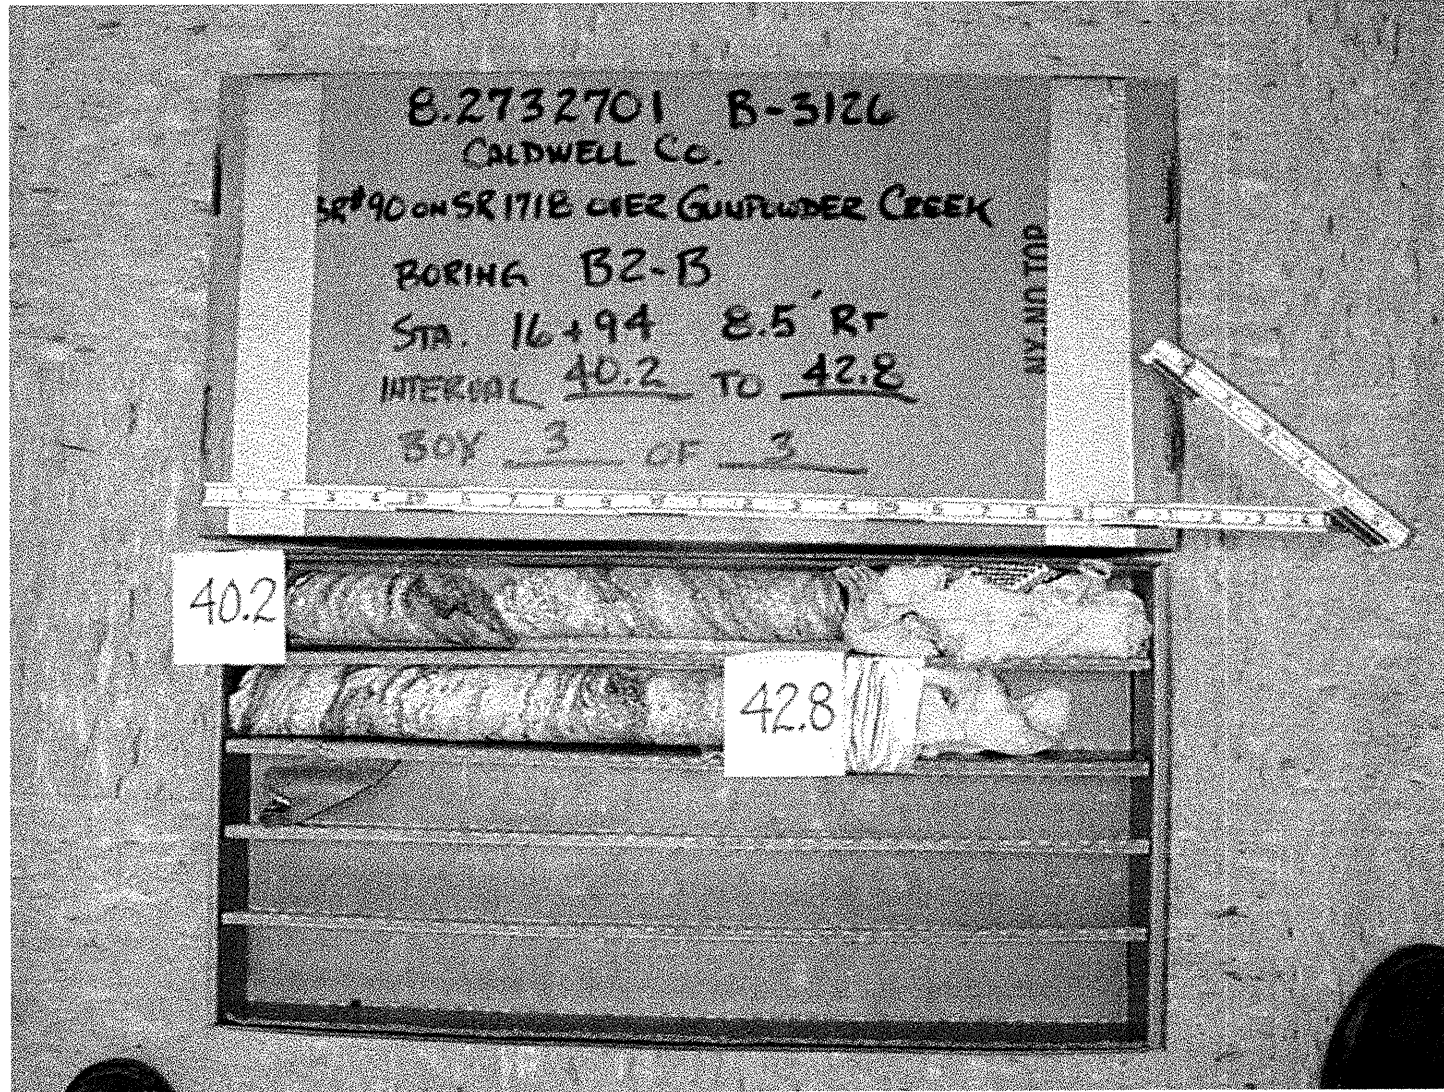 8.2732701 B-3126
CALDWELL CO.
BR#90 ON SR1718 OVER GUNPOWDER CREEK
BORING B2-B
STA. 16+94 8.5' RT
INTERVAL 40.2 TO 42.8
BOX 3 OF 3
40.2
42.8